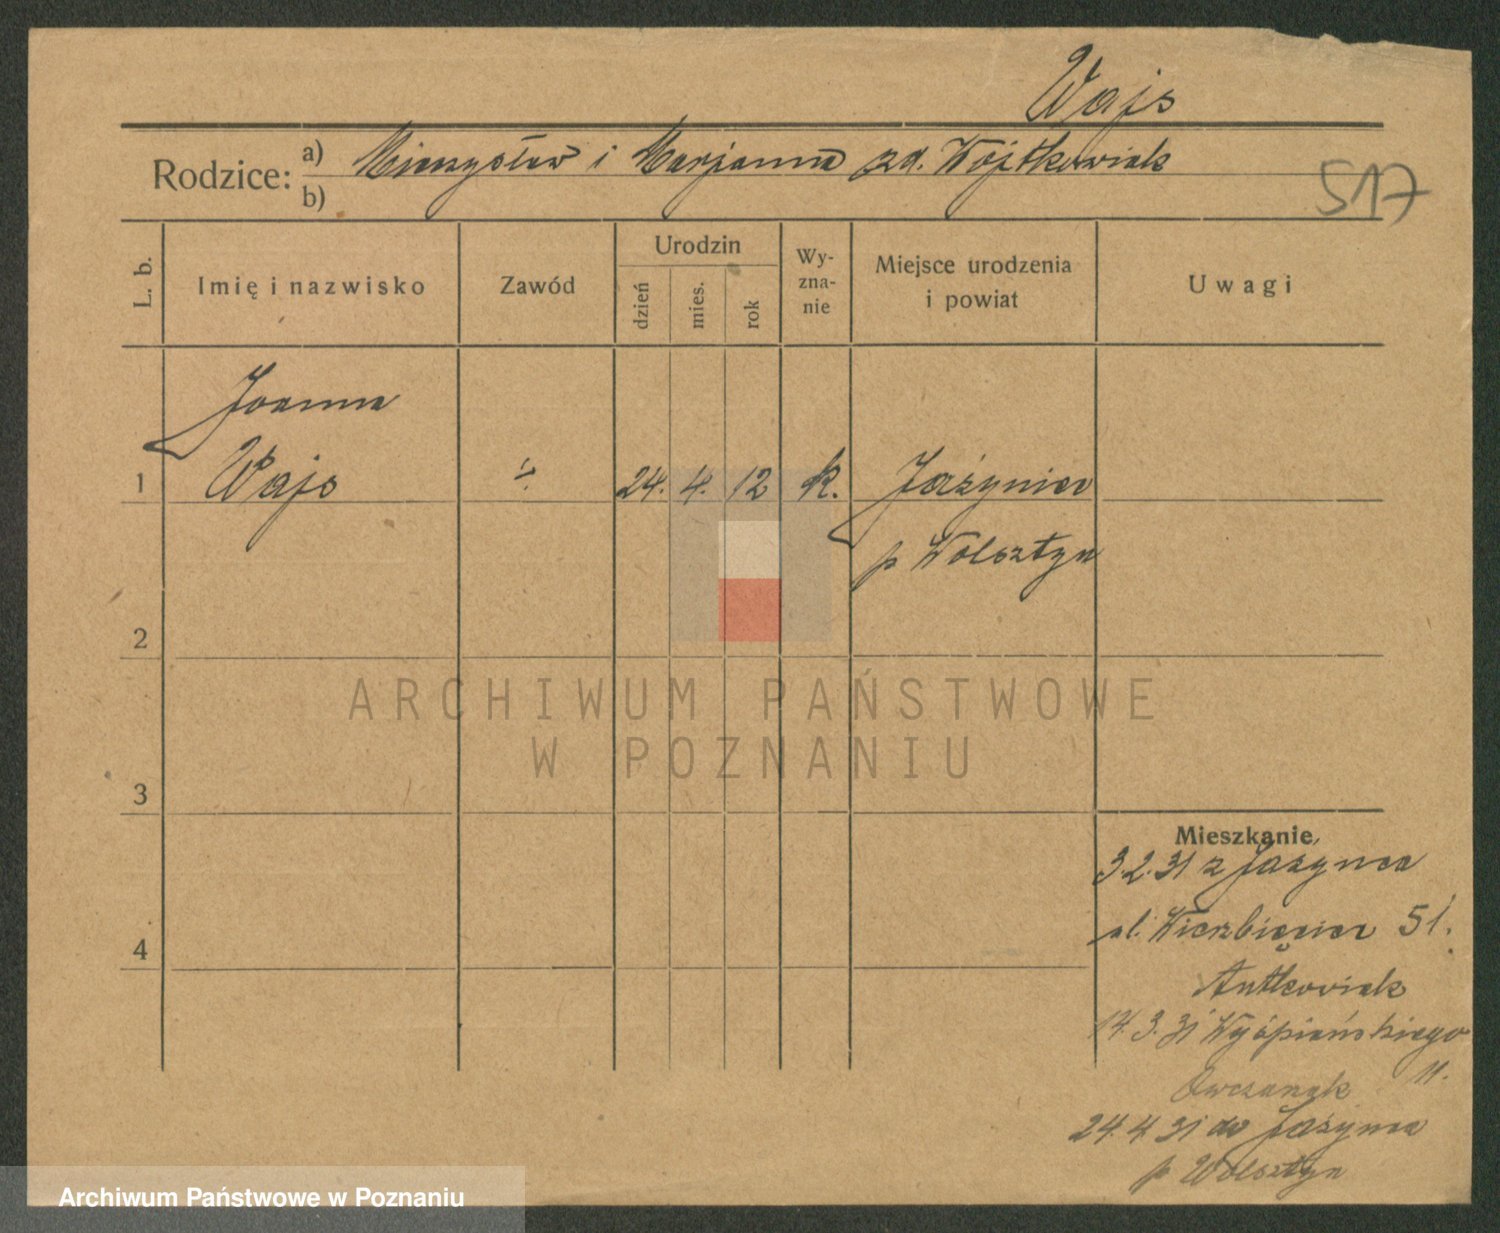 Wajs
Rodzice: a) Mieczysław i Marjanna zd. Wojtkowiak
b)
517
L. b.
Imię i nazwisko
Zawód
Urodzin
dzień
mies.
rok
Wy-
zna-
nie
Miejsce urodzenia
i powiat
Uwagi
Joanna
1 Wajs ÷ 24. 4. 12 k. Jażyniec
p Wolsztyn
2
ARCHIWUM PAŃSTWOWE
W POZNANIU
3
Mieszkanie
3.2.31 z Jażyniec
ul. Wierzbięcice 51.
4
Antkowiak
14.3.31 Wyspiańskiego
11.
Owczarek
24.4.31 do Jażyniec
p Wolsztyn
Archiwum Państwowe w Poznaniu